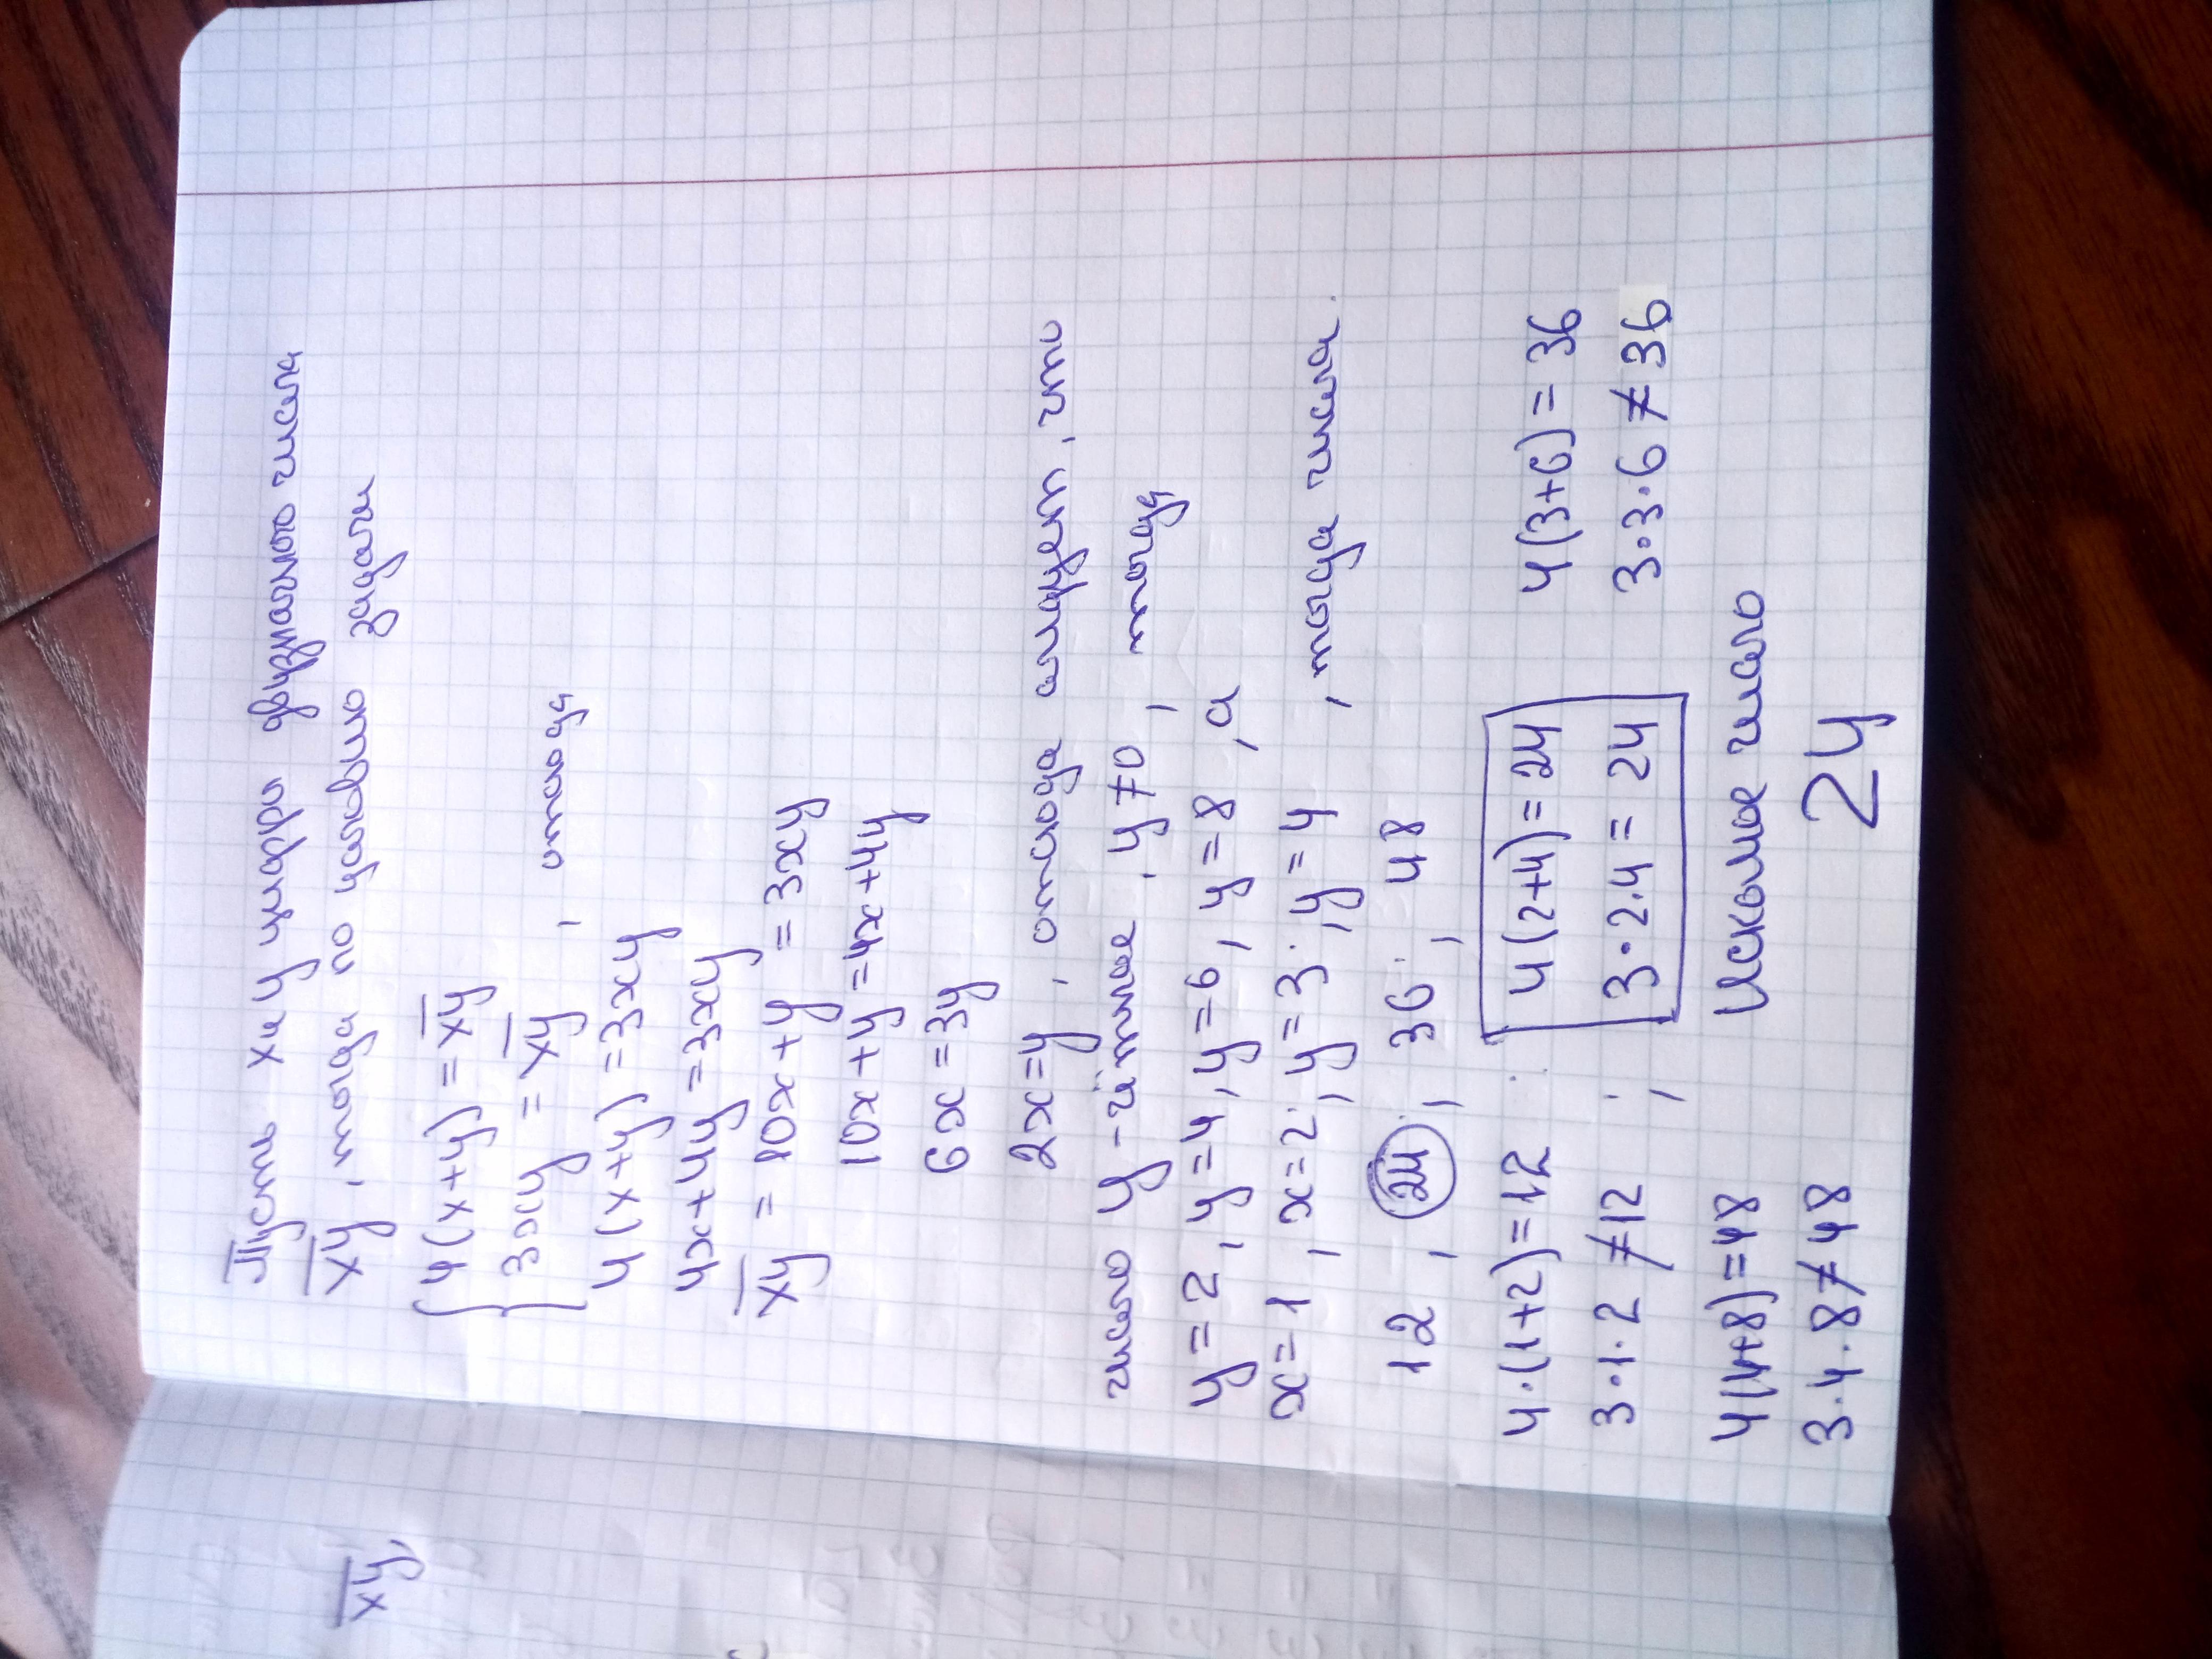 Пусть x и y цифры двузначного числа
x̅y̅, тогда по условию задачи
{4(x+y) = x̅y̅
{3xy = x̅y̅, отсюда
4(x+y) = 3xy
4x+4y = 3xy
x̅y̅ = 10x+y = 3xy
10x+y = 4x+4y
6x = 3y
2x = y, отсюда следует, что
число y - чётное, y ≠ 0, тогда
y = 2, y = 4, y = 6, y = 8, а
x = 1, x = 2; y = 3; y = 4, тогда числа
12, 24; 36; 48
4·(1+2) = 12 4(2+4) = 24 4(3+6) = 36
3·1·2 ≠ 12; 3·2·4 = 24 3·3·6 ≠ 36
4(4+8) = 48 Искомое число
3·4·8 ≠ 48 24
x̅y̅,